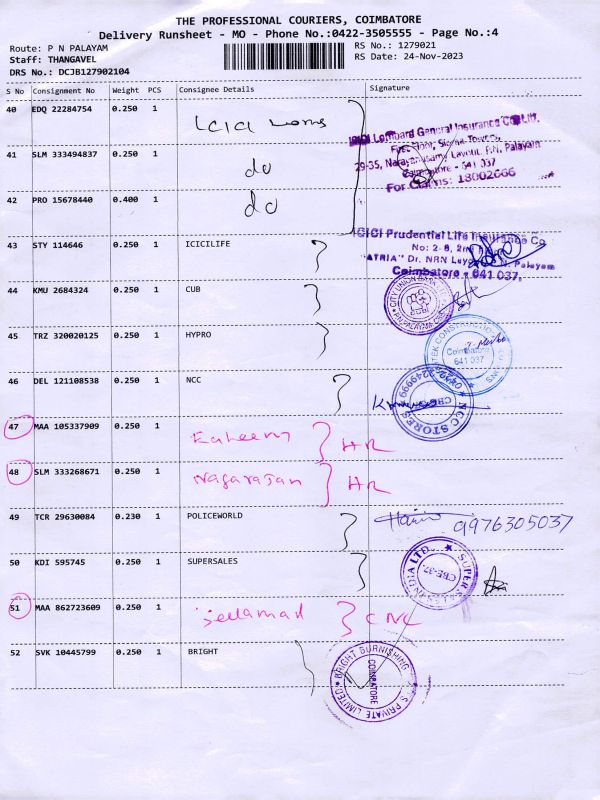 THE PROFESSIONAL COURIERS, COIMBATORE
Delivery Runsheet - MO - Phone No.:0422-3505555 - Page No.:4
Route: P N PALAYAM
RS No.: 1279021
Staff: THANGAVEL
RS Date: 24-Nov-2023
DRS No.: DCJB127902104
S No Consignment No Weight PCS Consignee Details Signature
40 EDQ 22284754 0.250 1
ICICI Lombard General Insurance Co. Ltd.
41 SLM 333494837 0.250 1 do
29-35, Narayanasamy Layout, P.N. Palayam
Coimbatore - 641 037
For Claims: 18002666
42 PRO 15678440 0.400 1 do
ICICI Prudential Life Insurance Co
43 STY 114646 0.250 1 ICICILIFE
No: 2-6, 2nd
"ATRIA" Dr. NRN Layout Palayam
Coimbatore - 641 037.
44 KMU 2684324 0.250 1 CUB
CITY UNION BANK
45 TRZ 320020125 0.250 1 HYPRO
Coimbatore
641 037
46 DEL 121108538 0.250 1 NCC
NCC STORES
47 MAA 105337909 0.250 1 HR
48 SLM 333268671 0.250 1 Nagarajan HR
49 TCR 29630084 0.230 1 POLICEWORLD 9976305037
50 KDI 595745 0.250 1 SUPERSALES
SUPER SALES INDIA LTD.
CBE-37.
51 MAA 862723609 0.250 1 CNC
52 SVK 10445799 0.250 1 BRIGHT
BRIGHT BURNISHING
PRIVATE LIMITED
COIMBATORE